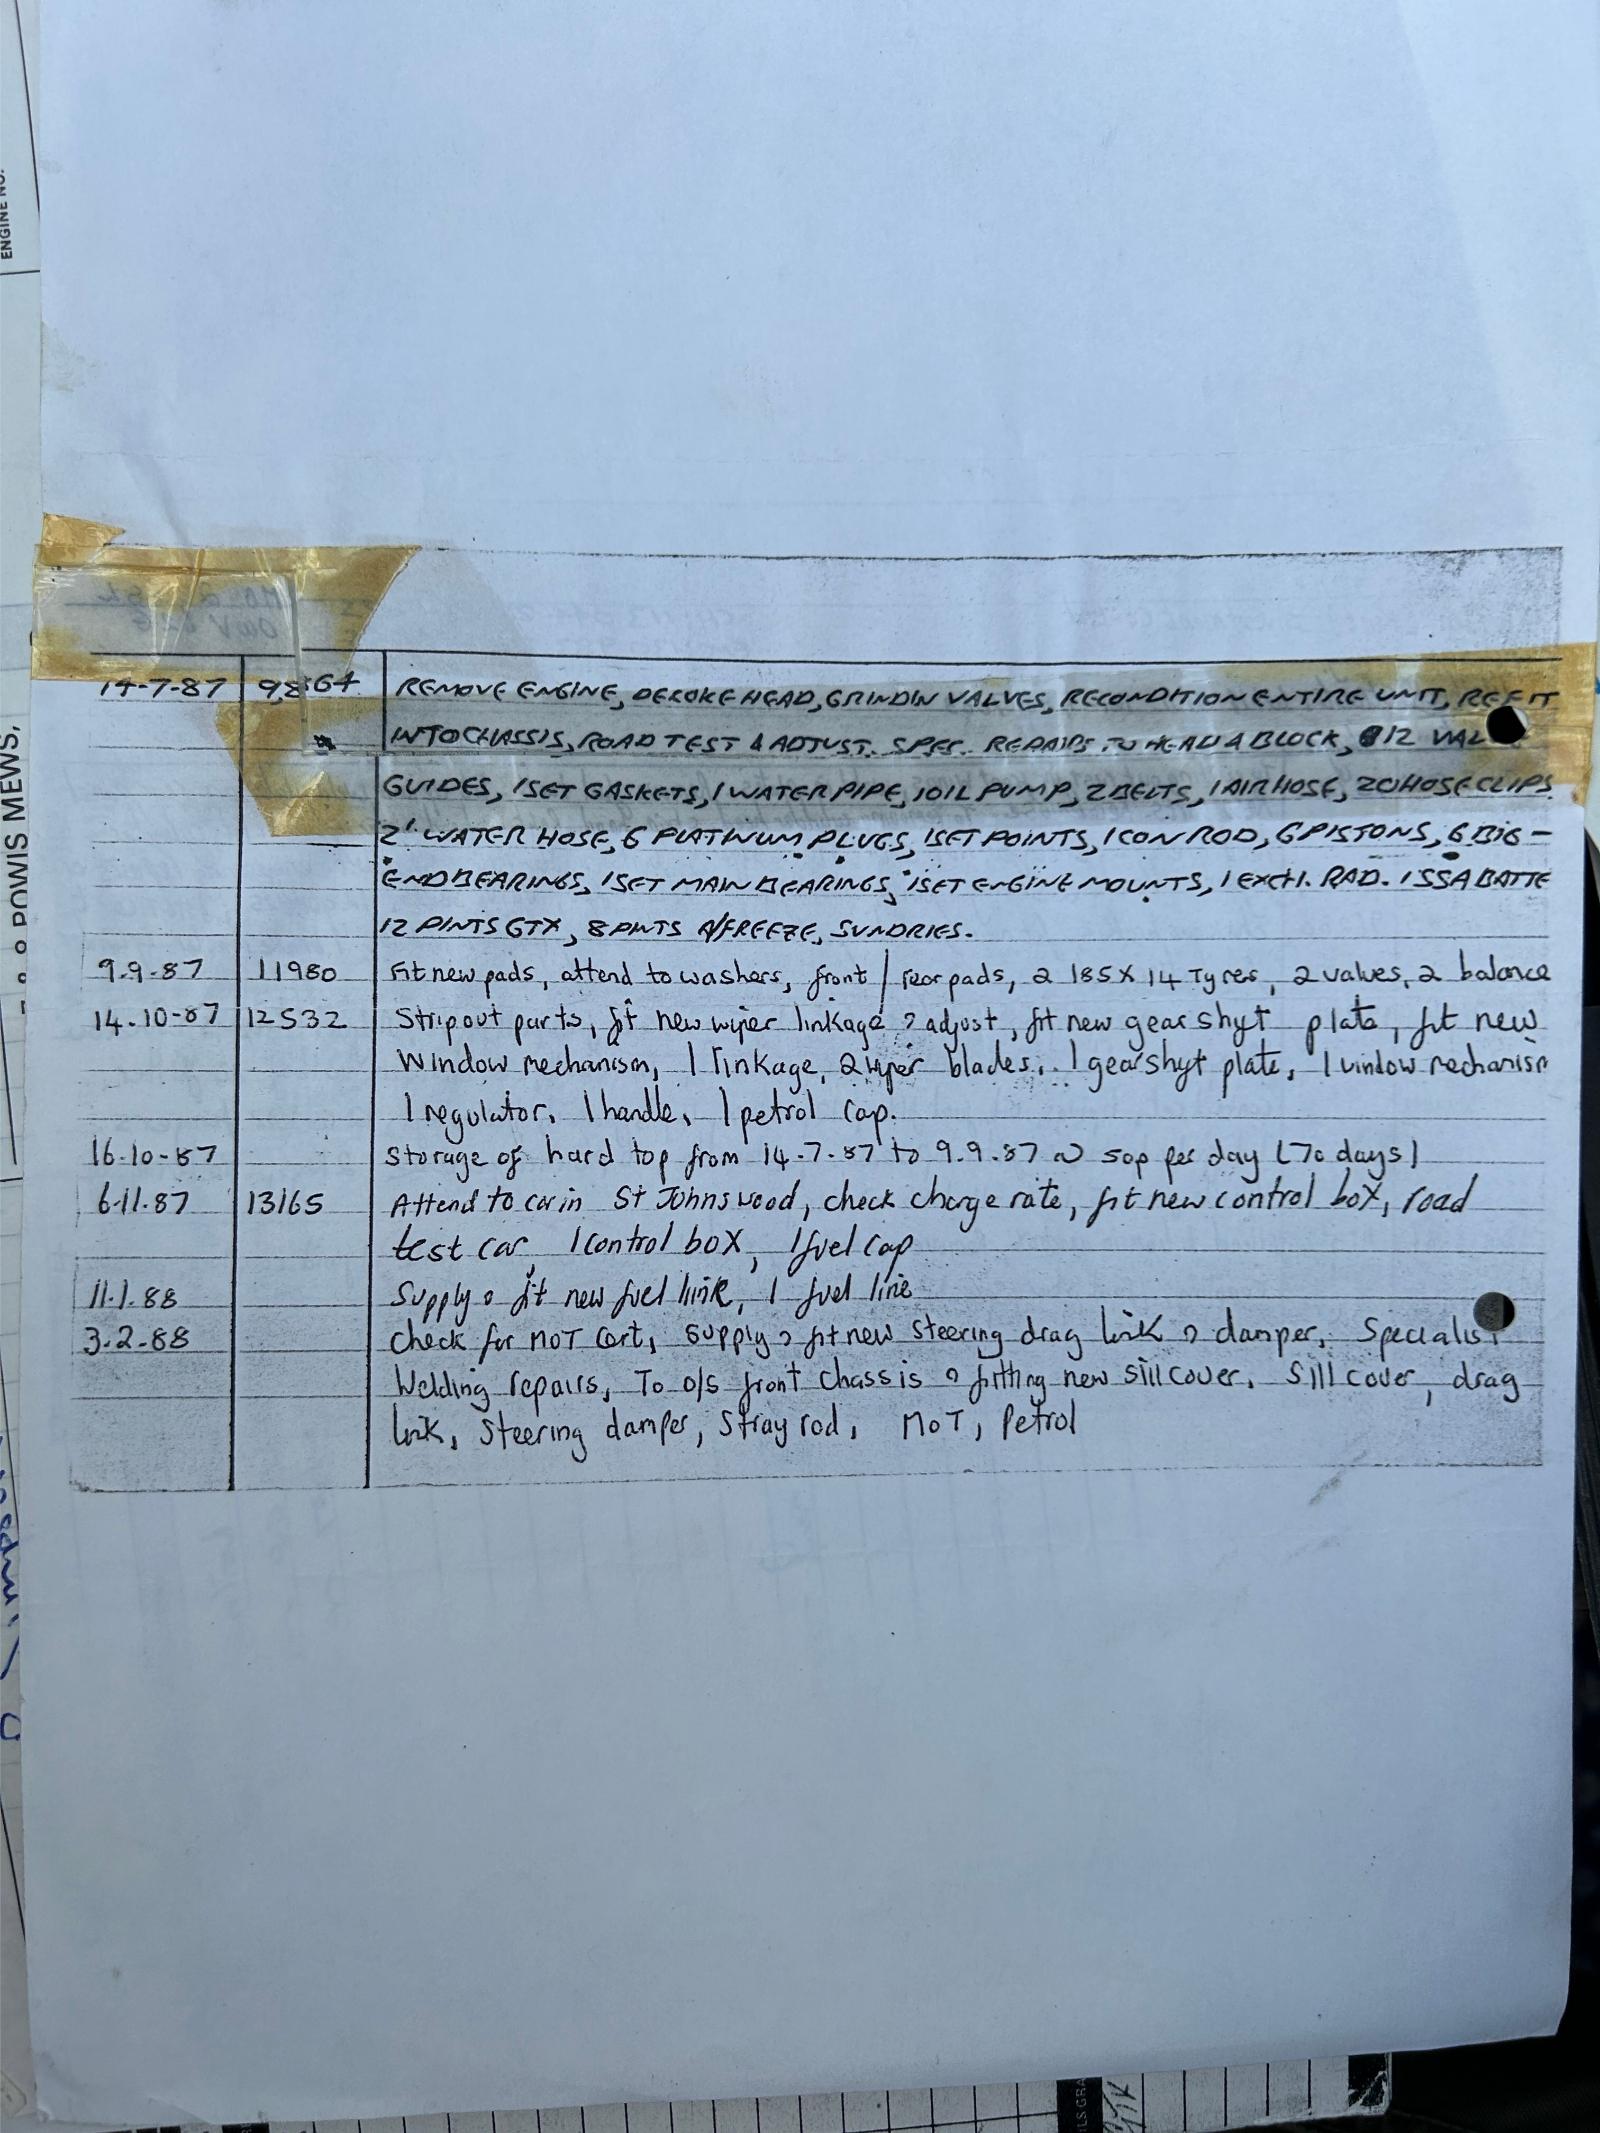 ENGINE NO.
POWIS MEWS,
14-7-87 9,8364 REMOVE ENGINE, DECOKE HEAD, GRINDIN VALVES, RECONDITION ENTIRE UNIT, REFIT
INTO CHASSIS, ROAD TEST & ADJUST. SPEC. REPAIRS TO HEAD & BLOCK, 12 VAL
GUIDES, 1 SET GASKETS, 1 WATER PIPE, 1 OIL PUMP, 2 BELTS, 1 AIR HOSE, 20 HOSE CLIPS
2' WATER HOSE, 6 PLATINUM PLUGS, 1 SET POINTS, 1 CON ROD, 6 PISTONS, 6 BIG-
END BEARINGS, 1 SET MAIN BEARINGS, 1 SET ENGINE MOUNTS, 1 EXCH. RAD. 1 SSA BATTE
12 PINTS GTX, 8 PINTS A/FREEZE, SUNDRIES.
9.9-87 11980 Fit new pads, attend to washers, front / rear pads, 2 185 X 14 Tyres, 2 valves, 2 balance
14.10-87 12532 Strip out parts, fit new wiper linkage & adjust, fit new gear shyt plate, fit new
Window mechanism, 1 linkage, 2 wiper blades, 1 gearshyt plate, 1 window mechanism
1 regulator, 1 handle, 1 petrol cap.
16-10-87 Storage of hard top from 14-7-87 to 9.9.87 @ 50p per day (70 days)
6-11.87 13165 Attend to car in St Johns wood, check charge rate, fit new control box, road
test car, 1 control box, 1 fuel cap
11.1.88 Supply & fit new fuel link, 1 fuel line
3-2-88 Check for MOT Cert, Supply & fit new steering drag link & damper, Specialist
Welding repairs, To o/s front chassis & fitting new sill cover, Sill cover, drag
link, Steering damper, Stray rod, MOT, Petrol